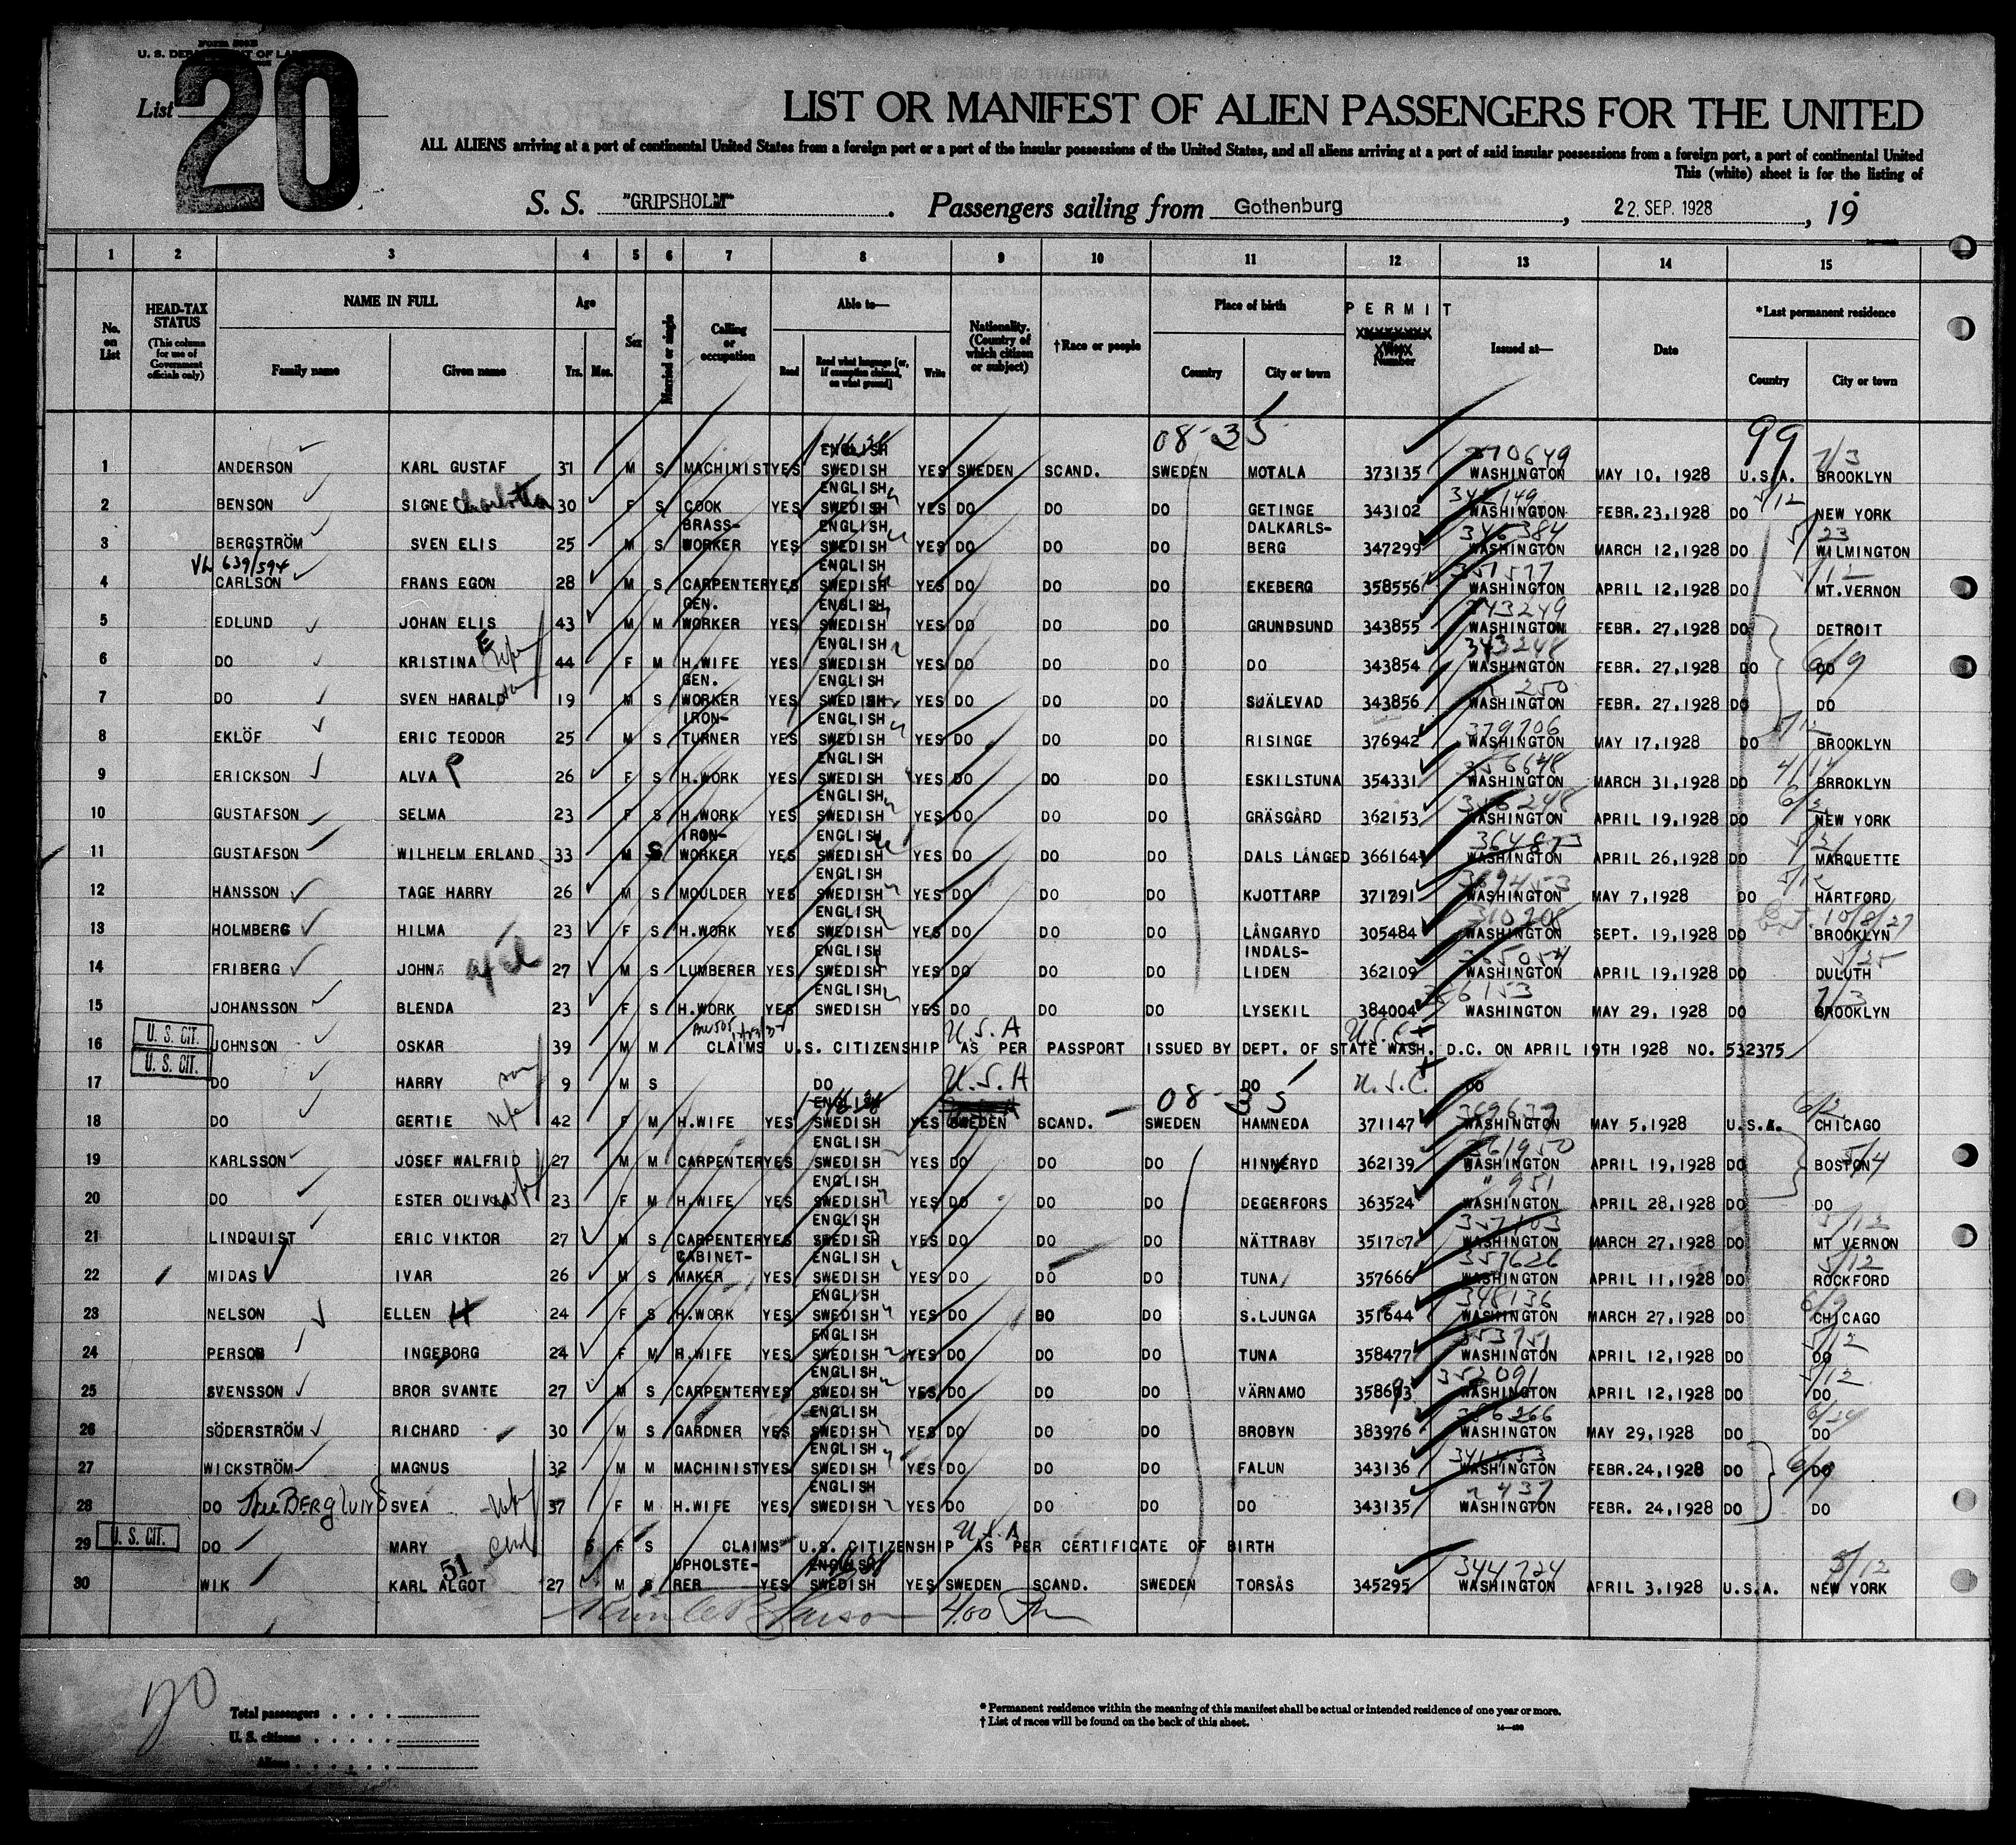 Form 500B
U. S. DEPARTMENT OF LABOR
List 20
LIST OR MANIFEST OF ALIEN PASSENGERS FOR THE UNITED
ALL ALIENS arriving at a port of continental United States from a foreign port or a port of the insular possessions of the United States, and all aliens arriving at a port of said insular possessions from a foreign port, a port of continental United
This (white) sheet is for the listing of
S. S. "GRIPSHOLM" . Passengers sailing from Gothenburg , 22. SEP. 1928 , 19
1 2 3 4 5 6 7 8 9 10 11 12 13 14 15
No. on List HEAD-TAX STATUS (This column for use of Government officials only) NAME IN FULL Family name Given name Age Yrs. Mos. Sex Married or single Calling or occupation Able to— Read Read what language [or, if exemption claimed, on what ground] Write Nationality. (Country of which citizen or subject) †Race or people Place of birth Country City or town PERMIT Number Issued at— Date *Last permanent residence Country City or town
08-35 99
1 ANDERSON KARL GUSTAF 37 M S MACHINIST YES ENGLISH SWEDISH YES SWEDEN SCAND. SWEDEN MOTALA 373135 370649 WASHINGTON MAY 10, 1928 U.S.A. 7/3 BROOKLYN
2 BENSON SIGNE Charlotta 30 F S COOK YES ENGLISH SWEDISH YES DO DO DO GETINGE 343102 WASHINGTON FEBR.23,1928 DO 5/12 NEW YORK
3 BERGSTRÖM SVEN ELIS 25 M S BRASS-WORKER YES ENGLISH SWEDISH YES DO DO DO DALKARLS-BERG 347299 346384 WASHINGTON MARCH 12,1928 DO 5/23 WILMINGTON
639/594
4 CARLSON FRANS EGON 28 M S CARPENTER YES ENGLISH SWEDISH YES DO DO DO EKEBERG 358556 351577 WASHINGTON APRIL 12,1928 DO 5/12 MT.VERNON
5 EDLUND JOHAN ELIS 43 M M GEN. WORKER YES ENGLISH SWEDISH YES DO DO DO GRUNDSUND 343855 343249 WASHINGTON FEBR. 27,1928 DO DETROIT
6 DO KRISTINA E wife 44 F M H.WIFE YES ENGLISH SWEDISH YES DO DO DO DO 343854 343248 WASHINGTON FEBR. 27,1928 DO 6/9 DO
7 DO SVEN HARALD son 19 M S GEN. WORKER YES ENGLISH SWEDISH YES DO DO DO SJÄLEVAD 343856 " 250 WASHINGTON FEBR. 27,1928 DO DO
8 EKLÖF ERIC TEODOR 25 M S IRON-TURNER YES ENGLISH SWEDISH YES DO DO DO RISINGE 376942 379706 WASHINGTON MAY 17,1928 DO 5/12 BROOKLYN
9 ERICKSON ALVA P 26 F S H.WORK YES ENGLISH SWEDISH YES DO DO DO ESKILSTUNA 354331 356648 WASHINGTON MARCH 31,1928 DO BRROKLYN
10 GUSTAFSON SELMA 23 F S H.WORK YES ENGLISH SWEDISH YES DO DO DO GRÄSGÅRD 362153 356248 WASHINGTON APRIL 19,1928 DO 6/2 NEW YORK
11 GUSTAFSON WILHELM ERLAND 33 M S IRON-WORKER YES ENGLISH SWEDISH YES DO DO DO DALS LÅNGED 366164 364873 WASHINGTON APRIL 26,1928 DO MARQUETTE
12 HANSSON TAGE HARRY 26 M S MOULDER YES ENGLISH SWEDISH YES DO DO DO KJOTTARP 371791 369453 WASHINGTON MAY 7,1928 DO 5/12 HARTFORD
13 HOLMBERG HILMA 23 F S H.WORK YES ENGLISH SWEDISH YES DO DO DO LÅNGARYD 305484 310208 WASHINGTON SEPT. 19,1928 DO Ext. 10/8/27 BROOKLYN
14 FRIBERG JOHN 27 M S LUMBERER YES ENGLISH SWEDISH YES DO DO DO INDALS-LIDEN 362109 365054 WASHINGTON APRIL 19,1928 DO 5/25 DULUTH
15 JOHANSSON BLENDA 23 F S H.WORK YES ENGLISH SWEDISH YES DO DO DO LYSEKIL 384004 356153 WASHINGTON MAY 29, 1928 DO 7/3 BROOKLYN
U. S. CIT. U.S.A U.S.C.
16 JOHNSON OSKAR 39 M M CLAIMS U.S. CITIZENSHIP AS PER PASSPORT ISSUED BY DEPT. OF STATE WASH. D.C. ON APRIL 19TH 1928 NO. 532375
U. S. CIT.
17 DO HARRY son 9 M S DO U.S.A DO U.S.C. DO
08-35
18 DO GERTIE wife 42 F M H.WIFE YES ENGLISH SWEDISH YES SWEDEN SCAND. SWEDEN HAMNEDA 371147 369639 WASHINGTON MAY 5,1928 U.S.A. 6/2 CHICAGO
19 KARLSSON JOSEF WALFRID 27 M M CARPENTER YES ENGLISH SWEDISH YES DO DO DO HINNERYD 362139 361950 WASHINGTON APRIL 19,1928 DO BOSTON 5/4
20 DO ESTER OLIVIA wife 23 F M H.WIFE YES ENGLISH SWEDISH YES DO DO DO DEGERFORS 363524 " 951 WASHINGTON APRIL 28,1928 DO DO
21 LINDQUIST ERIC VIKTOR 27 M S CARPENTER YES ENGLISH SWEDISH YES DO DO DO NÄTTRABY 351767 357103 WASHINGTON MARCH 27,1928 DO 5/12 MT VERNON
22 MIDAS IVAR 26 M S CABINET-MAKER YES ENGLISH SWEDISH YES DO DO DO TUNA 357666 357626 WASHINGTON APRIL 11,1928 DO 5/12 ROCKFORD
23 NELSON ELLEN H 24 F S H.WORK YES ENGLISH SWEDISH YES DO DO DO S.LJUNGA 351644 348136 WASHINGTON MARCH 27,1928 DO 6/9 CHICAGO
24 PERSON INGEBORG 24 F M H.WIFE YES ENGLISH SWEDISH YES DO DO DO TUNA 358477 353751 WASHINGTON APRIL 12,1928 DO 5/12 DO
25 SVENSSON BROR SVANTE 27 M S CARPENTER YES ENGLISH SWEDISH YES DO DO DO VÄRNAMO 358693 352091 WASHINGTON APRIL 12,1928 DO 5/12 DO
26 SÖDERSTRÖM RICHARD 30 M S GARDNER YES ENGLISH SWEDISH YES DO DO DO BROBYN 383976 386266 WASHINGTON MAY 29,1928 DO 6/24 DO
27 WICKSTRÖM MAGNUS 32 M M MACHINIST YES ENGLISH SWEDISH YES DO DO DO FALUN 343136 WASHINGTON FEBR.24,1928 DO 6/9 DO
28 DO BERGlUND SVEA wife 37 F M H.WIFE YES ENGLISH SWEDISH YES DO DO DO DO 343135 " 437 WASHINGTON FEBR. 24,1928 DO DO
U. S. CIT. U.S.A
29 DO MARY Child 5 F S CLAIMS U.S. CITIZENSHIP AS PER CERTIFICATE OF BIRTH
51
30 WIK KARL ALGOT 27 M S UPHOLSTE-RER YES ENGLISH SWEDISH YES SWEDEN SCAND. SWEDEN TORSÅS 345295 344724 WASHINGTON APRIL 3,1928 U.S.A. 5/12 NEW YORK
4.00
Total passengers . . . .
U. S. citizens . . . . .
Aliens . . . . . .
* Permanent residence within the meaning of this manifest shall be actual or intended residence of one year or more.
† List of races will be found on the back of this sheet.